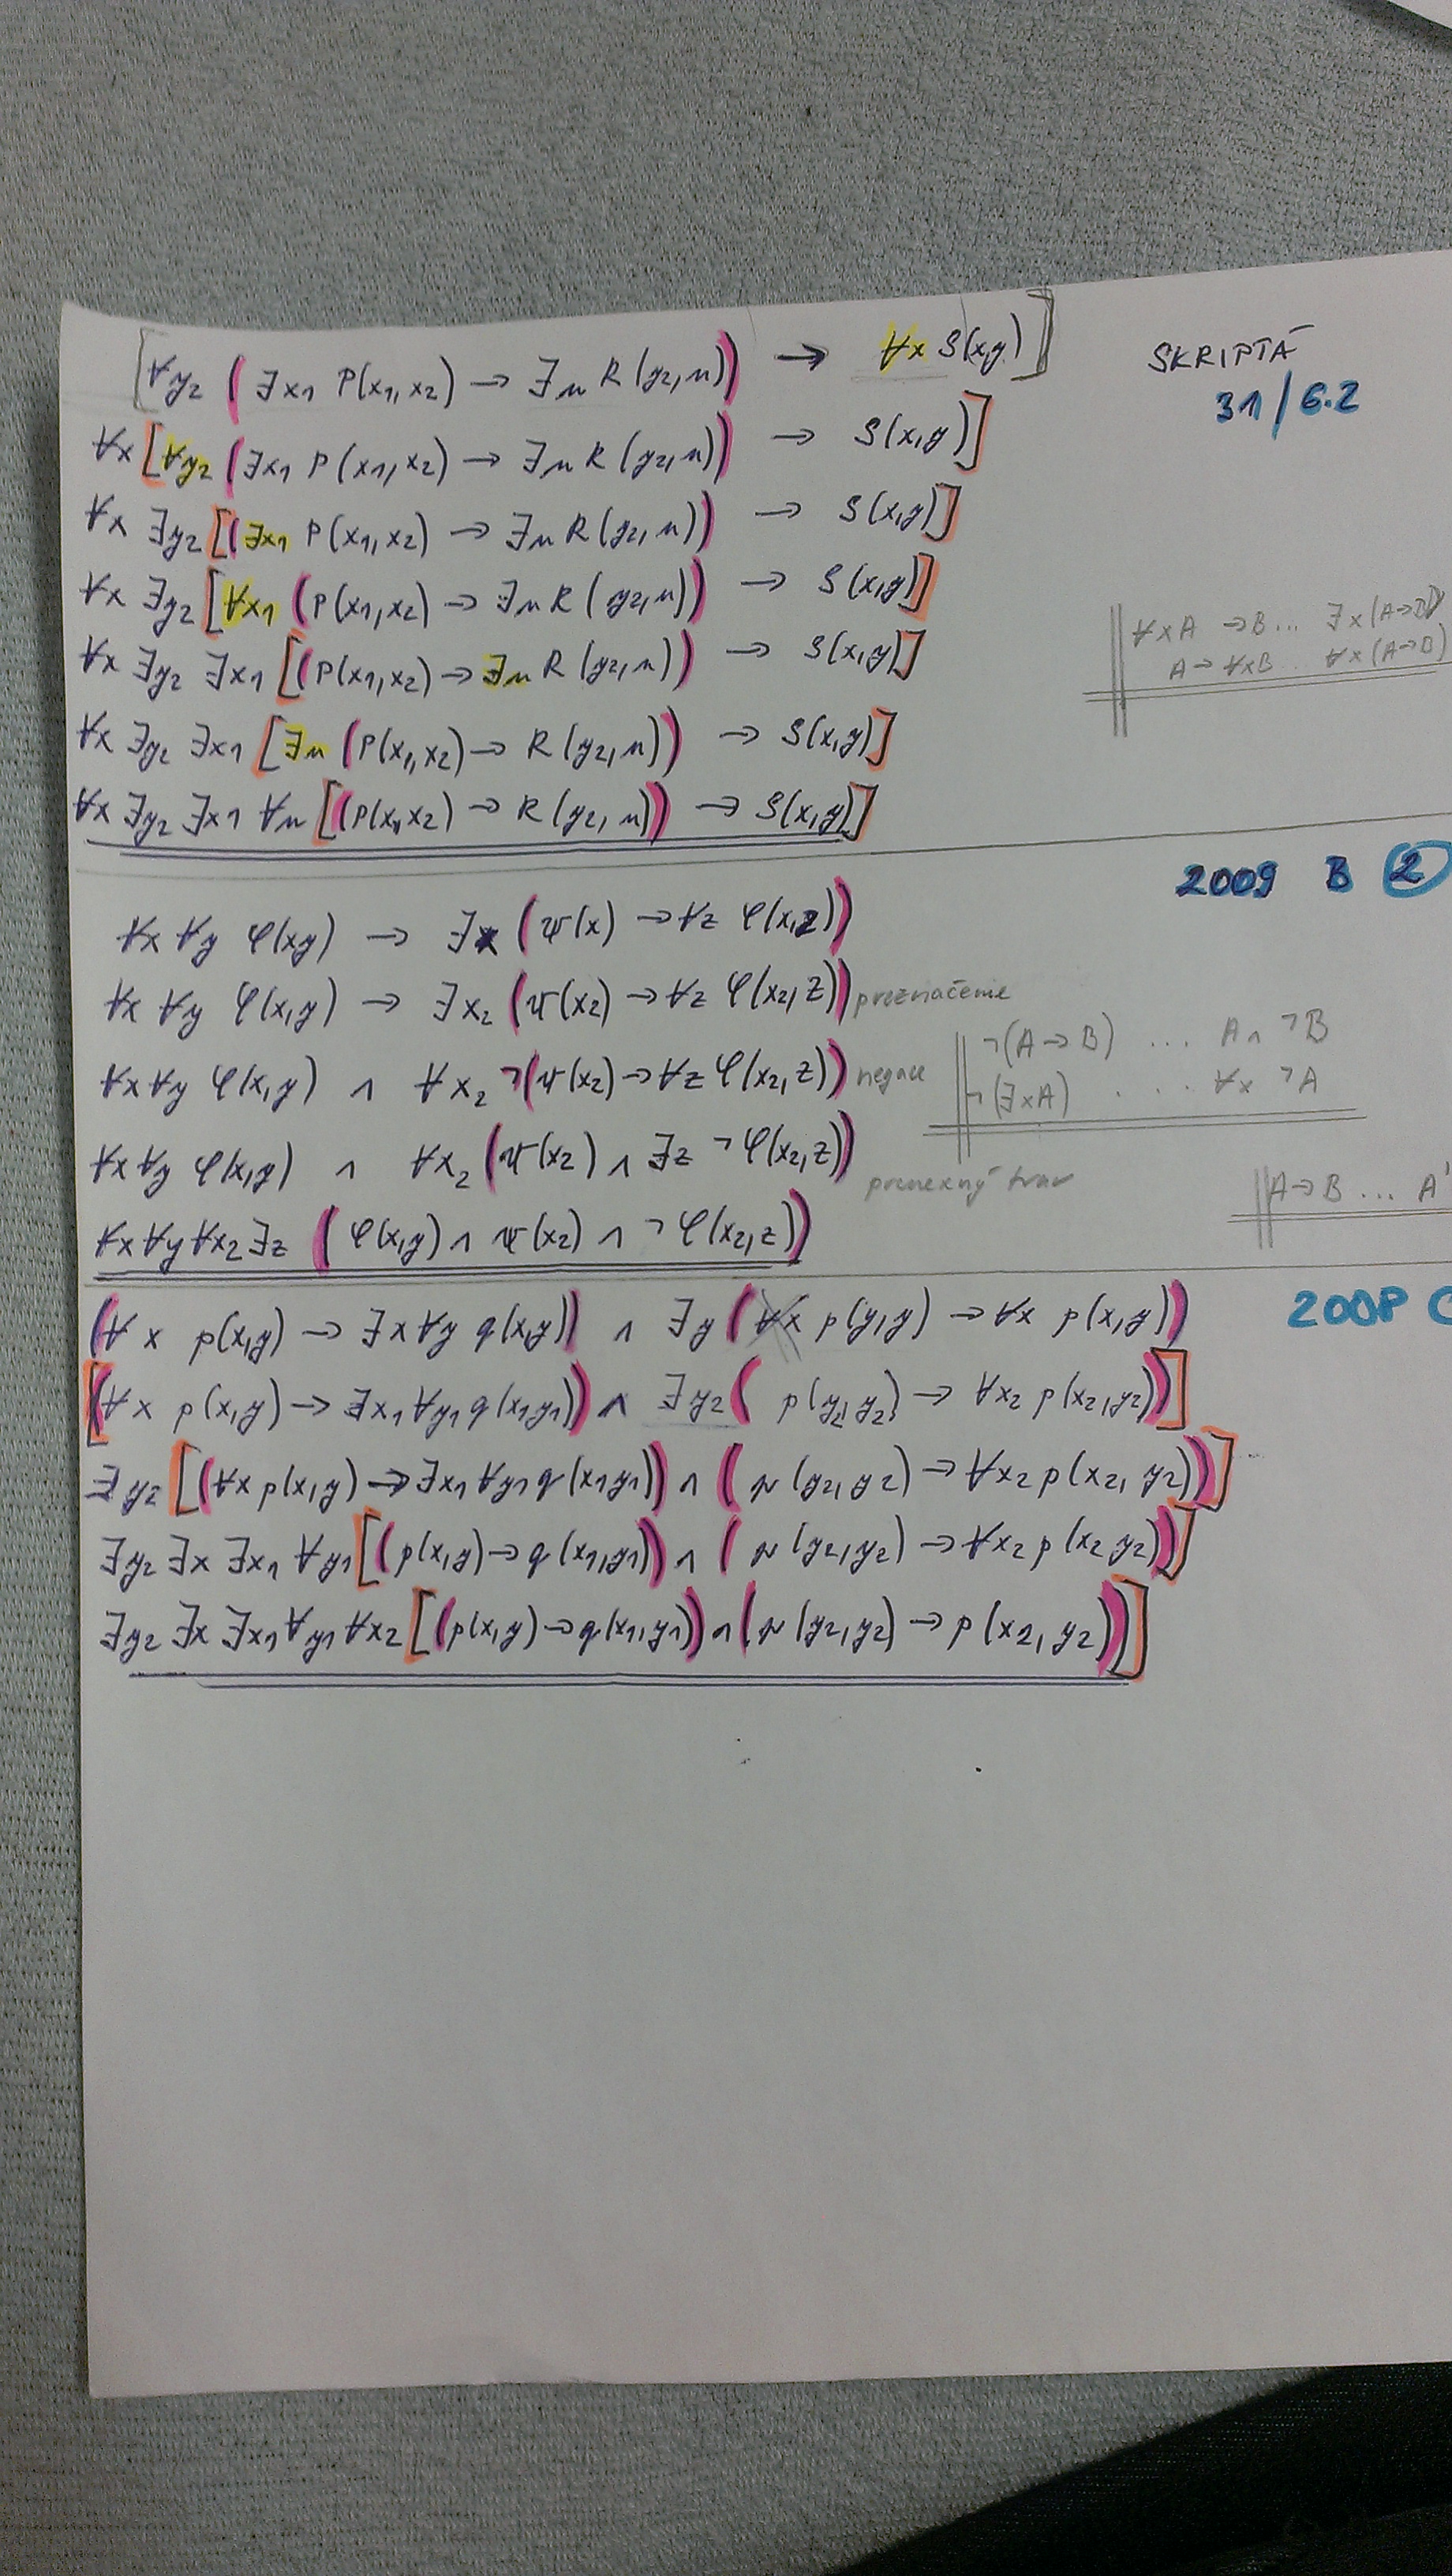 [∀y₂ (∃x₁ P(x₁,x₂) → ∃u R(y₂,u)) → ∀x S(x,y)]
SKRIPTÁ
31/6.2
∀x [∀y₂ (∃x₁ P(x₁,x₂) → ∃u R(y₂,u)) → S(x,y)]
∀x ∃y₂ [(∃x₁ P(x₁,x₂) → ∃u R(y₂,u)) → S(x,y)]
∀x ∃y₂ [∀x₁ (P(x₁,x₂) → ∃u R(y₂,u)) → S(x,y)]
∀x ∃y₂ ∃x₁ [(P(x₁,x₂) → ∃u R(y₂,u)) → S(x,y)]
∀x ∃y₂ ∃x₁ [∃u (P(x₁,x₂) → R(y₂,u)) → S(x,y)]
∀x ∃y₂ ∃x₁ ∀u [(P(x₁,x₂) → R(y₂,u)) → S(x,y)]
∀xA → B ... ∃x(A→B)
A → ∀xB .. ∀x(A→B)
2009 B 2
∀x ∀y φ(x,y) → ∃x (ψ(x) → ∀z φ(x,z))
∀x ∀y φ(x,y) → ∃x₂ (ψ(x₂) → ∀z φ(x₂,z)) preznačenie
∀x ∀y φ(x,y) ∧ ∀x₂ ¬(ψ(x₂) → ∀z φ(x₂,z)) negace
∀x ∀y φ(x,y) ∧ ∀x₂ (ψ(x₂) ∧ ∃z ¬φ(x₂,z))
prenexný tvar
∀x ∀y ∀x₂ ∃z (φ(x,y) ∧ ψ(x₂) ∧ ¬φ(x₂,z))
¬(A→B) ... A ∧ ¬B
¬(∃xA) . . . ∀x ¬A
A→B ... A
(∀x p(x,y) → ∃x ∀y q(x,y)) ∧ ∃y (∀x p(y,y) → ∀x p(x,y))
[(∀x p(x,y) → ∃x₁ ∀y₁ q(x₁y₁)) ∧ ∃y₂ ( p(y₂,y₂) → ∀x₂ p(x₂,y₂))]
∃y₂ [(∀x p(x,y) → ∃x₁ ∀y₁ q(x₁y₁)) ∧ (p(y₂,y₂) → ∀x₂ p(x₂,y₂))]
∃y₂ ∃x ∃x₁ ∀y₁ [(p(x,y) → q(x₁,y₁)) ∧ (p(y₂,y₂) → ∀x₂ p(x₂y₂))]
∃y₂ ∃x ∃x₁ ∀y₁ ∀x₂ [(p(x,y) → q(x₁,y₁)) ∧ (p(y₂,y₂) → p(x₂,y₂))]